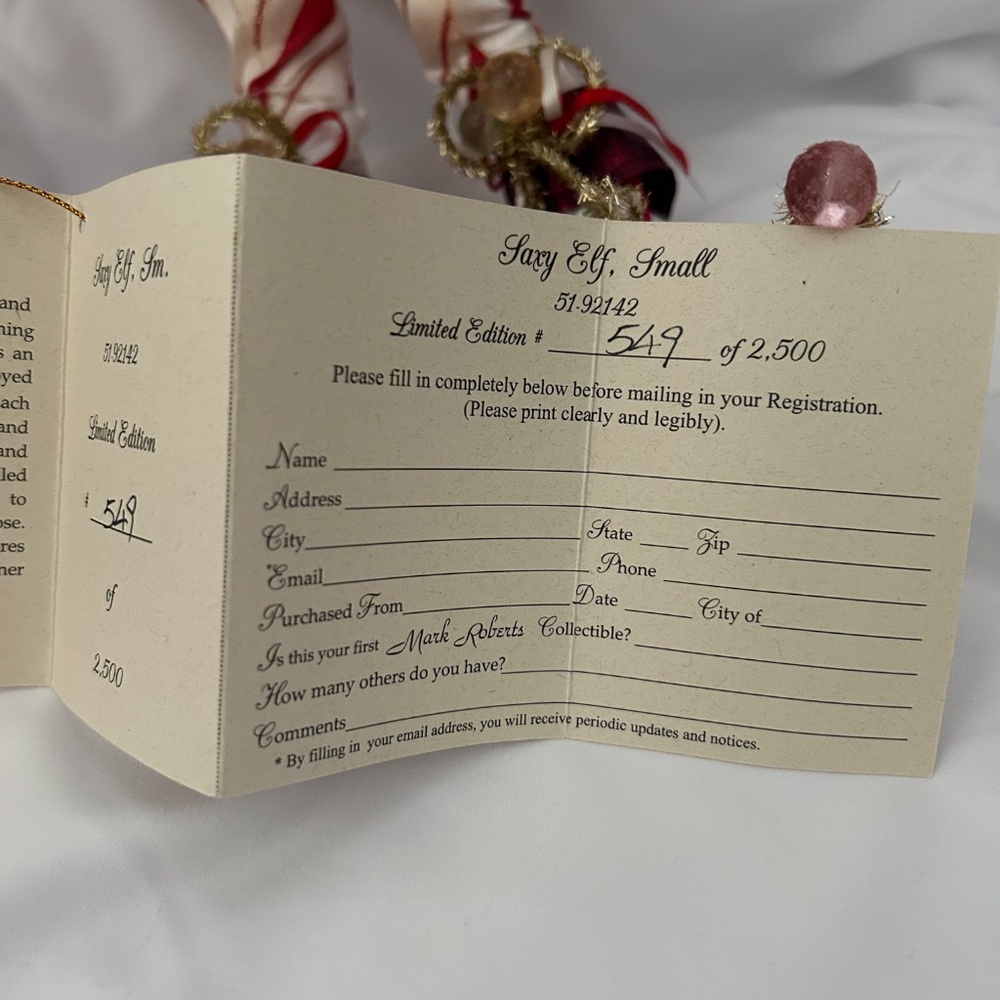 and
ning
s an
yed
ach
and
and
led
to
ose.
res
her
Saxy Elf, Sm.
51-92142
Limited Edition
# 549
of
2,500
Saxy Elf, Small
51-92142
Limited Edition # 549 of 2,500
Please fill in completely below before mailing in your Registration.
(Please print clearly and legibly).
Name
Address
City State Zip
*Email Phone
Purchased From Date City of
Is this your first Mark Roberts Collectible?
How many others do you have?
Comments
* By filling in your email address, you will receive periodic updates and notices.